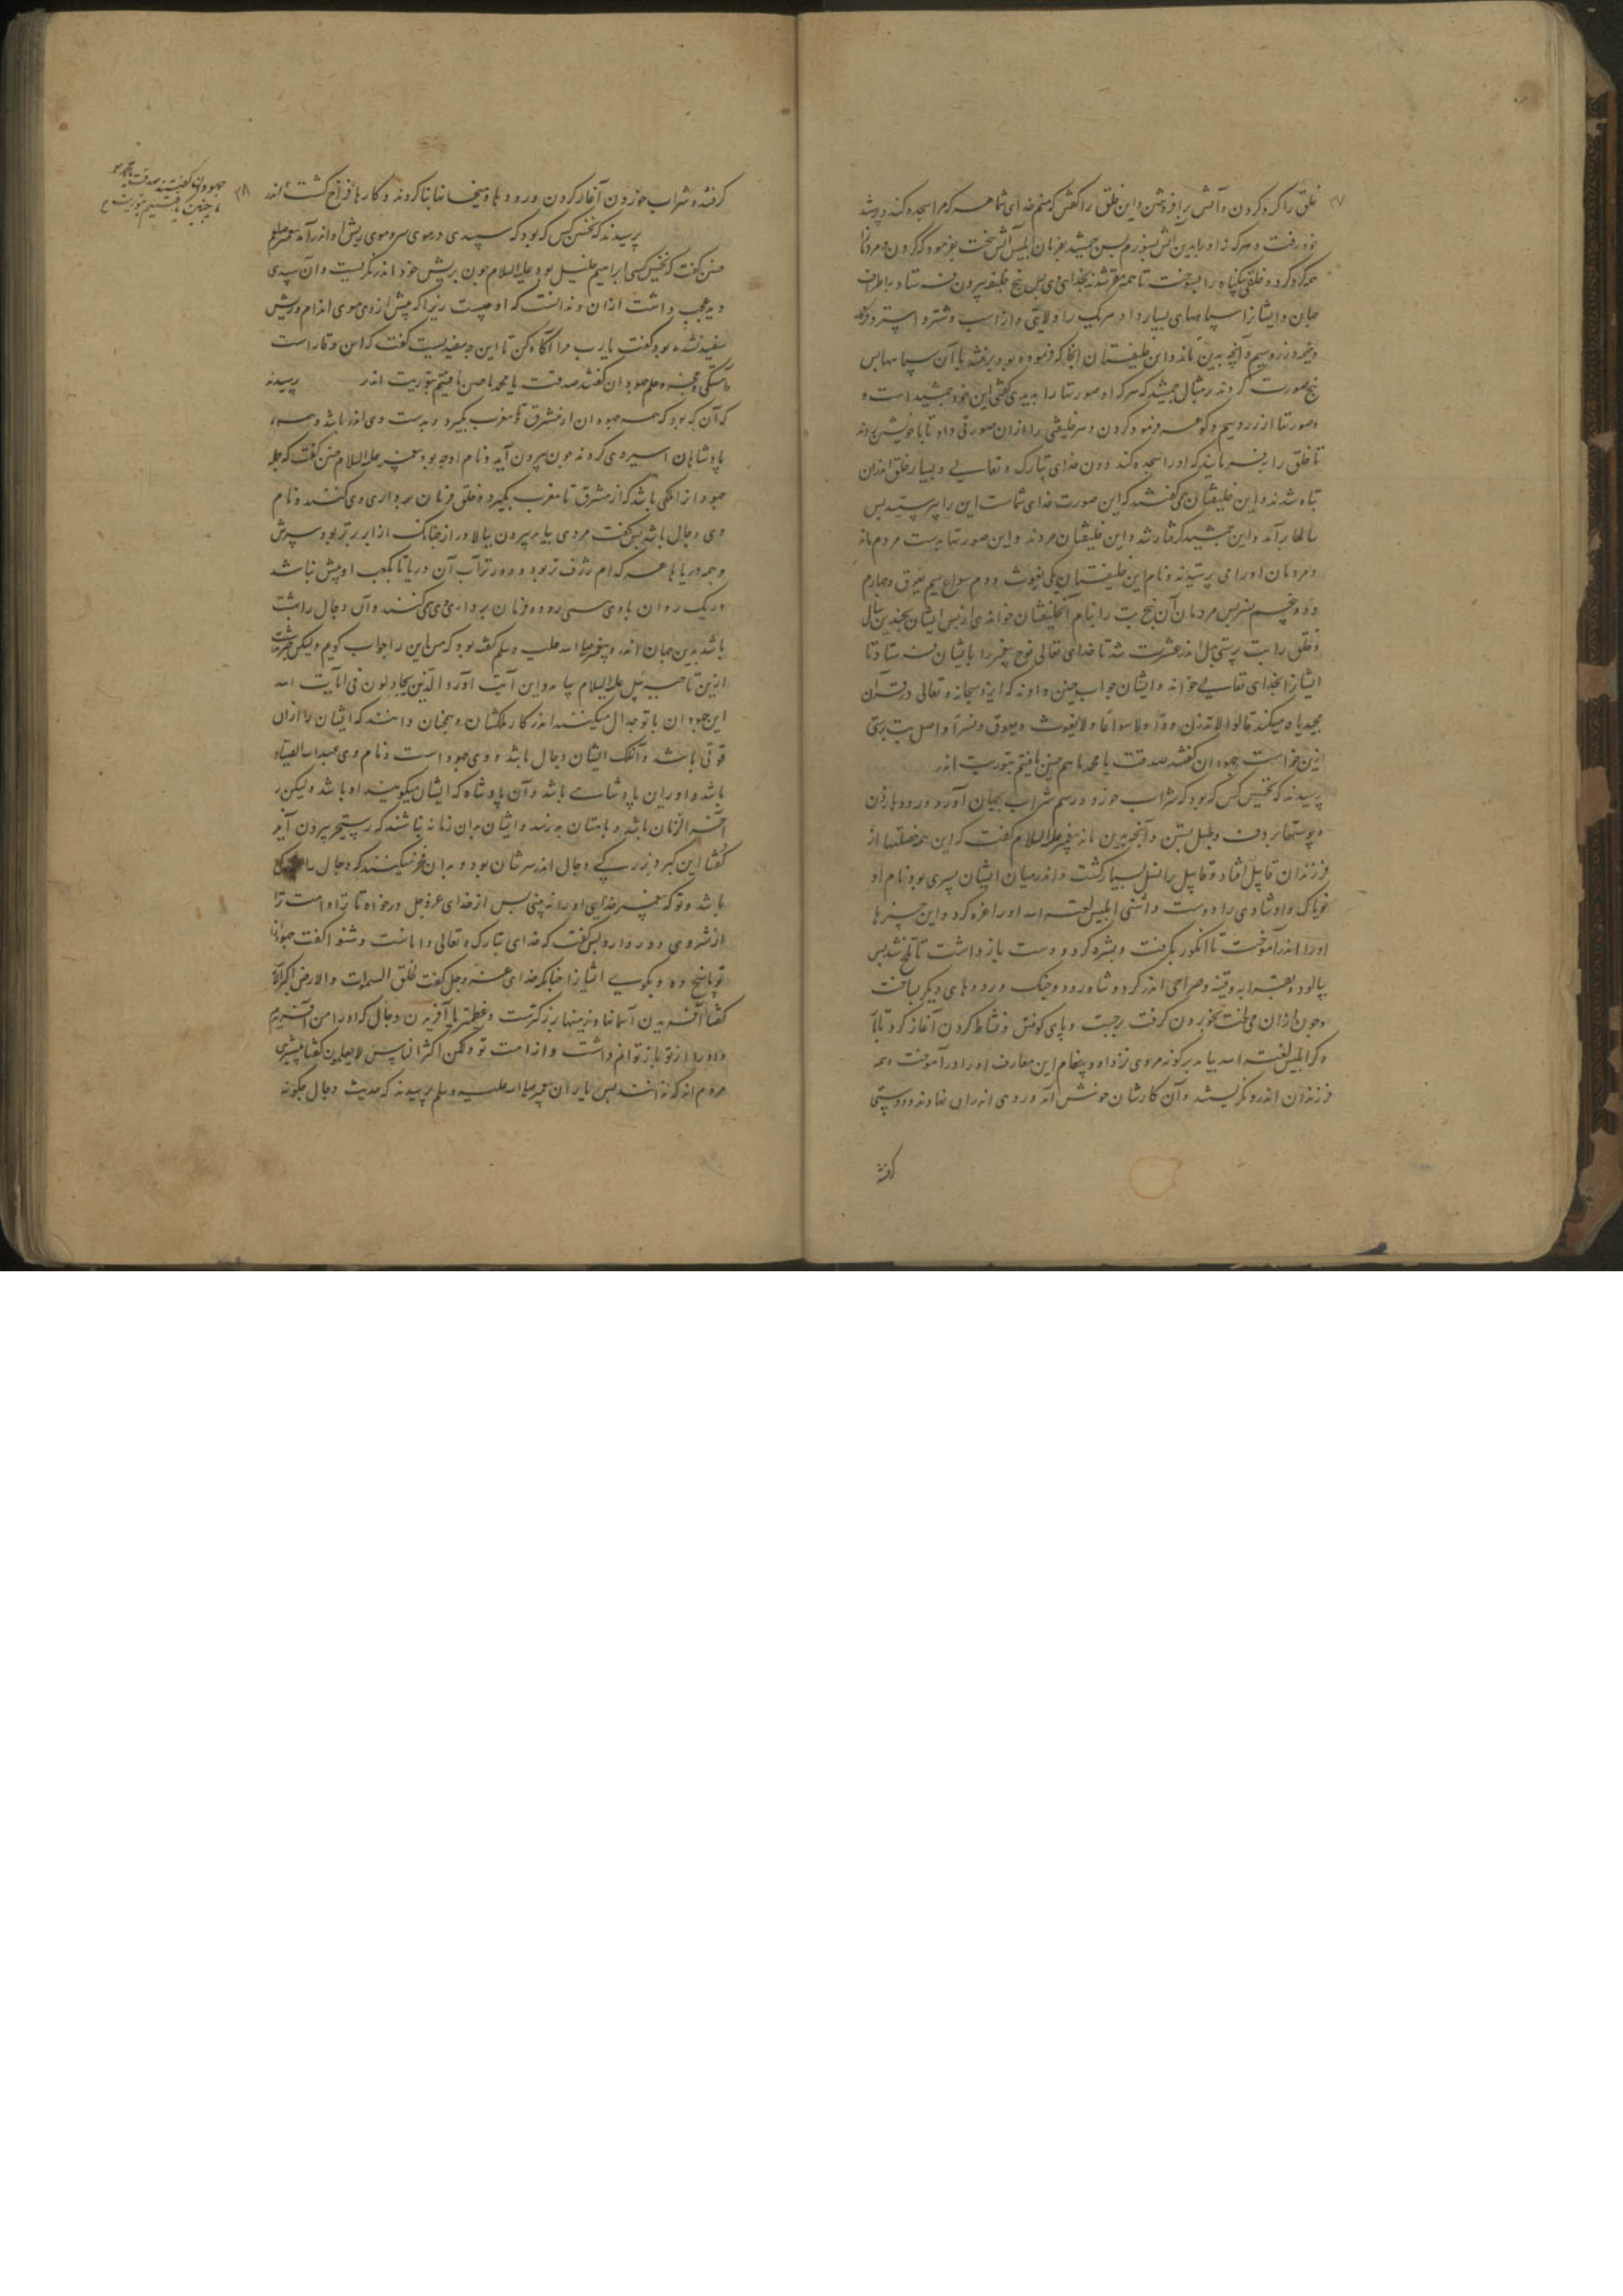 خلق را گرد کردن و آتش برافروختن و این خلق را گفتن که منم خدای شما هر که مرا سجده کند و پرستد
خود رفت و هر که نه او را بدین آتش بسوزم پس جمشید بفرمان ابلیس آتش سخت بفرمود کردن و مردمانرا
همه گرد کرد و خلقی بیگناه را بسوخت تا همه مقر شدند بخدائی وی پس پنج خلیفه بیرون فرستاد باطراف
جهان و ایشانرا سپاههای بسیار داد و هر یک را ولایتی داد از اسب و شتر و استر و
و خیمه و زر و سیم و آنچه بدین ماند و این خلیفتان آنجا که فرموده بود برفتند با آن سپاهها پس
پنج صورت کردند بر مثال جمشید که هر که آن صورتها را بدیدی گفتی این خود جمشید است
و صورتها از زر و سیم و گوهر فرمود کردن و هر خلیفتی را ازان صورتی داد تا با خویشتن بردند
تا خلق را بفرمایند که او را سجده کنند دون خدای تبارک و تعالی و بسیار خلق اندران
تباه شدند و این خلیفتان همی گفتند که این صورت خدای شماست این را پرستید پس
سالها برآمد و این جمشید گرفتار شد و این خلیفتان مردند و این صورتها بدست مردم ماند
و مردمان او را می پرستیدند و نام این خلیفتان یکی یغوث دوم سواع سیم یعوق و چهارم
ود و پنجم نسر پس مردمان آن پنج بت را بنام آن خلیفتان خواندندی از پس ایشان بچندین سال
و خلق را بت پرستی بدل اندر عشرت شد تا خدای تعالی نوح پیغمبر را بایشان فرستاد تا
ایشانرا بخدای تعالی خواند و ایشان جواب چنین دادند که ایزد سبحانه و تعالی در قرآن
مجید یاد میکند قالوا لا تذرن ودا ولا سواعا ولا یغوث ویعوق ونسرا و اصل بت پرستی
ازین خواست جهودان گفتند صدقت یا محمد ما هم چنین یافتیم بتوریت اندر
پرسیدند که نخستین کس که بود که شراب خورد و رسم شراب بجهان آورد و رودها زدن
و پوستها بر دف و طبل بستن و آنچه بدین ماند پیغمبر علیه السلام گفت که این همه خصلتها از
فرزندان قابیل افتاد و قابیل را نسل بسیار گشت و اندر میان ایشان پسری بود نام او
و او شادی را دوست داشتی ابلیس لعنه الله او را غره کرد و این چیزها
او را اندر آموخت تا انگور بگرفت و بشیره کرد و دست بازداشت تا تلخ شد پس
بپالود و بقرابه و قنینه و صراحی اندر کرد و شاه رود و چنگ و رودهای دیگر بساخت
و چون ازان می لخت بخوردن گرفت برجست و پای کوفتن و نشاط کردن آغاز کرد تا
دگر ابلیس لعنه الله بیامد بر گونه مردی نزد او و پیغام این معارف او را درآموخت و همه
فرزندان اندرو نگریستند و آن کارشان خوش آمد و روی اندران نهادند و دوستی
گرفتند
گرفتند و شراب خوردن آغاز کردن و رودها و میخانها بنا کردند و کارها فراخ گشت اندر
پرسیدند که نخستین کس که بود که سپیدی در موی سر و موی ریش او اندر آمد پیغمبر صلعم
چنین گفت که نخستین کسی ابراهیم خلیل بود علیه السلام چون بریش خود اندر نگریست و آن سپیدی
دید عجب داشت ازان و ندانست که او چیست زیرا که پیش از وی موی اندام و ریش
سفید نشده بود گفت یا رب مرا آگاه کن تا این چه سفیدیست گفت که این وقار است
و آهستگی و حلم جهودان گفتند صدقت یا محمد ما چنین یافتیم بتوریت اندر پرسیدند
که آن که بود که همه جهودان از مشرق تا مغرب بگیرد و بدست وی اندر باشد و همه
پادشاهان اسیر وی گردند چون بیرون آید و نام او چه بود پیغمبر علیه السلام چنین گفت که جمله
جهودانرا ملکی باشد که از مشرق تا مغرب بگیرد و خلق فرمان برداری وی کنند و نام
وی دجال باشد پس گفت مردی بیاید بیرون ببالا دراز چنانک از ابر برتر بود سرش
و همه دریاها هر کدام ژرف تر بود و دورتر آب آن دریا تا بکعب او بیش نباشد
و ریک روان با وی همی رود و فرمان برداری وی میکنند و آن دجال را بهشت
باشد بدین جهان اندر و پیغمبر صلی الله علیه وسلم گفته بود که من این را جواب گویم ولیکن
ازین تا جبرئیل علیه السلام بیامد و این آیت آورد الذین یجادلون فی آیات الله
این جهودان با تو جدال میکنند اندر کار ملکشان و چنان دانند که ایشان را ازان
قوتی باشد و آنک ملک ایشان دجال باشد و وی جهود است و نام وی عبدالله الصیاد
باشد و او بر ایشان پادشاه باشد و آن پادشاه که ایشان میگویند او باشد ولیکن در
آخر الزمان باشد و بدیشان نرسد و ایشان بدان زمانه نباشند که رستخیز بیرون آید
گفتا این کبر و بزرگی دجال اندر سرشان بود و بدان فخر میکنند که دجال را
باشد و تو که پیغمبر خدایی او را نبینی پس از خدای عزوجل درخواه تا ترا و امت ترا
از شر وی دور دارد پس گفت که خدای تبارک و تعالی داناست و شنوا گفت جهودانرا
تو پاسخ ده و بگوی ایشانرا چنانکه خدای عزوجل گفت لخلق السموات والارض اکبر الآیه
گفتا آفریدن آسمانها و زمینها بزرگترست و عظیمتر یا آفریدن دجال که او را من آفریدم
و او را از تو باز توانم داشت و از امت تو ولکن اکثر الناس لا یعلمون گفتا بیشتری
مردم اند که ندانند پس یاران پیغمبر صلی الله علیه وسلم پرسیدند که حدیث دجال چگونه
جهودان گفتند صدقت یا محمد
ما چنین یافتیم بتوریت